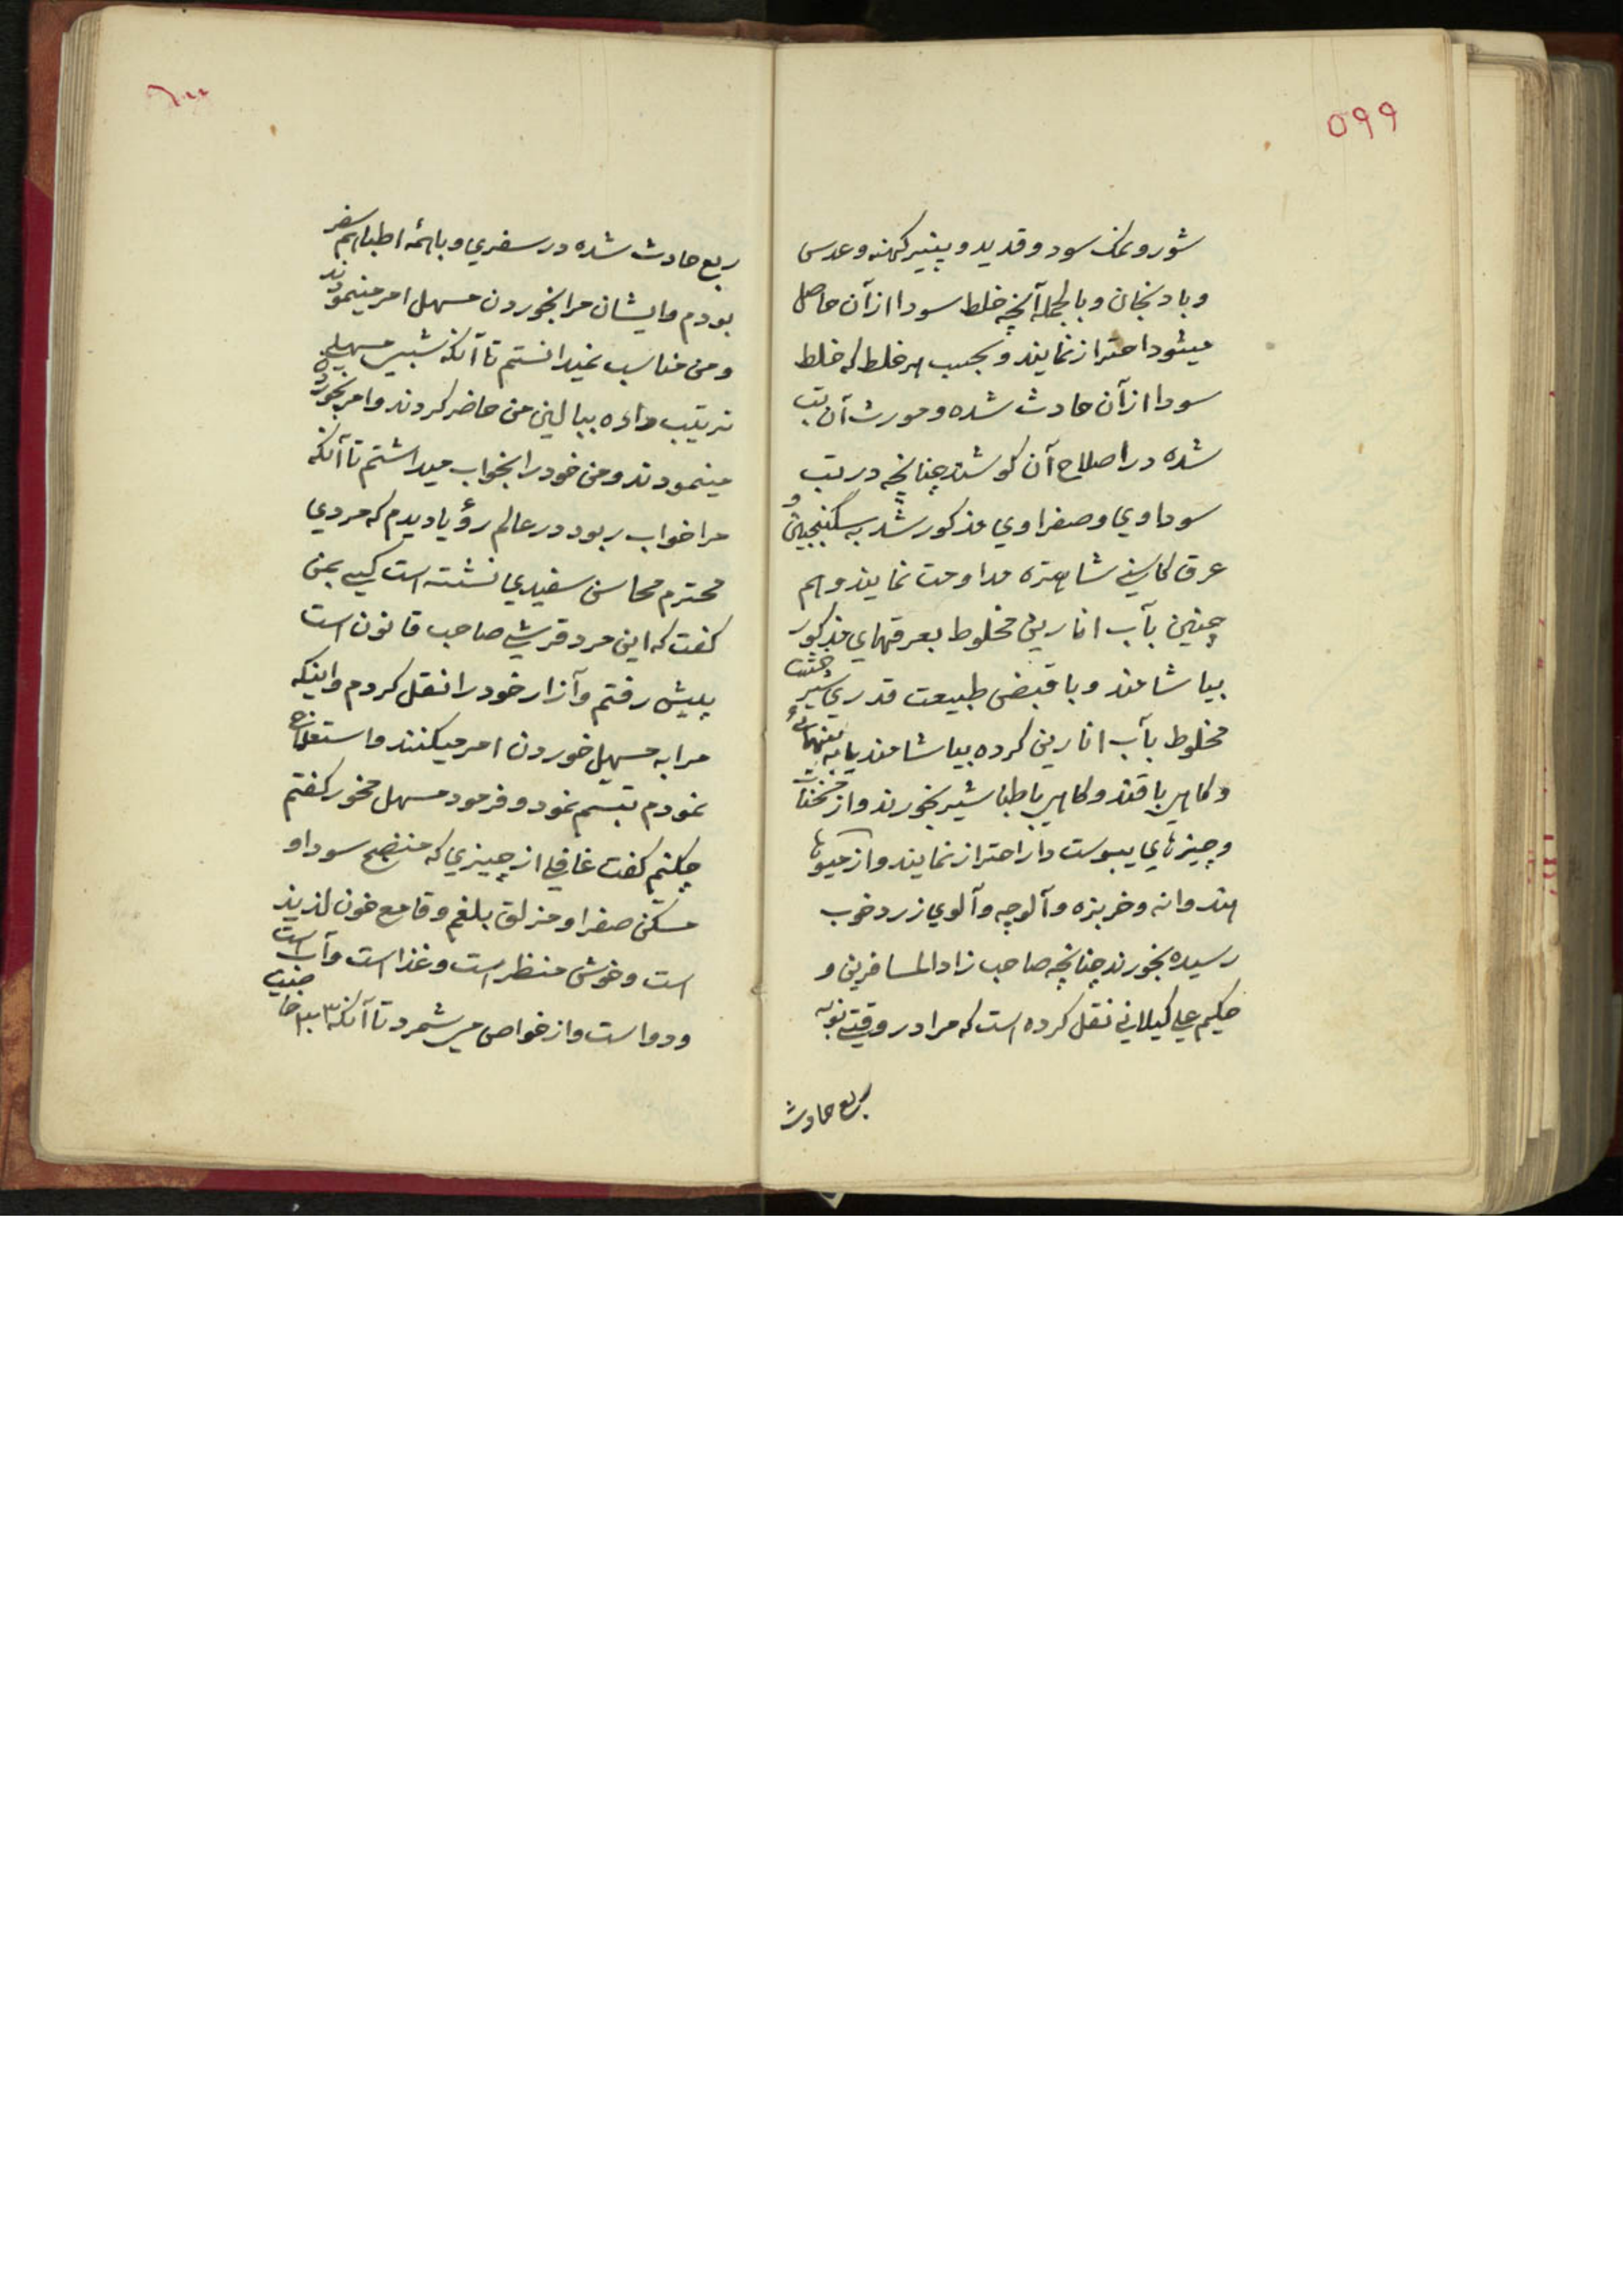 ۵۹۹
شور و نمک سود و قدید و پنیر کهنه و عدس
و بادنجان و بالجمله آنچه خلط سودا از آن حاصل
میشود احتراز نمایند و بحسب هر خلط که خلط
سودا از آن حادث شده و مورث آن تب
شده در اصلاح آن کوشند چنانچه در تب
سوداوي و صفراوي مذکور شد به سکنجبین و
عرق کاسنی شاهتره مداومت نمایند و هم
چنین بآب انارین مخلوط بعرقهاي مذکور
بیاشامند و با قبض طبیعت قدري شیر خشت
مخلوط بآب انارین کرده بیاشامند یا به تنهائی
و کاهی با قند و کاهی با طباشیر بخورند و از مسخنات
و چیزهاي یبوست دار احتراز نمایند و از میوها
هندوانه و خربزه و آلوچه و آلوي زرد خوب
رسیده بخورند چنانچه صاحب زاد المسافرین و
حکیم علی کیلانی نقل کرده است که مرا در وقتی نوبه
ربع حادث
٦٠٠
ربع حادث شده در سفري و با ائمه اطبا هم سفر
بودم و ایشان مرا بخوردن مسهل امر مینمودند
و من مناسب نمیدانستم تا آنکه شبی مسهلی
ترتیب داده ببالین من حاضر کردند و امر بخوردن
مینمودند و من خود را بخواب میداشتم تا آنکه
مرا خواب ربود در عالم رؤیا دیدم که مردي
محترم محاسن سفیدي نشسته است کسی بمن
کفت که این مرد قرشی صاحب قانون است
پیش رفتم و آزار خود را نقل کردم و اینکه
مرا به مسهل خوردن امر میکنند و استعلاج
نمودم تبسّم نمود و فرمود مسهل مخور کفتم
چکنم کفت غافلی از چیزي که منضج سودا و
مسکن صفرا و مزلق بلغم و قامع خون لذیذ
است و خوش منظر است و غذا است و آب است
و دوا است و از خواص می شمرد تا آنکه